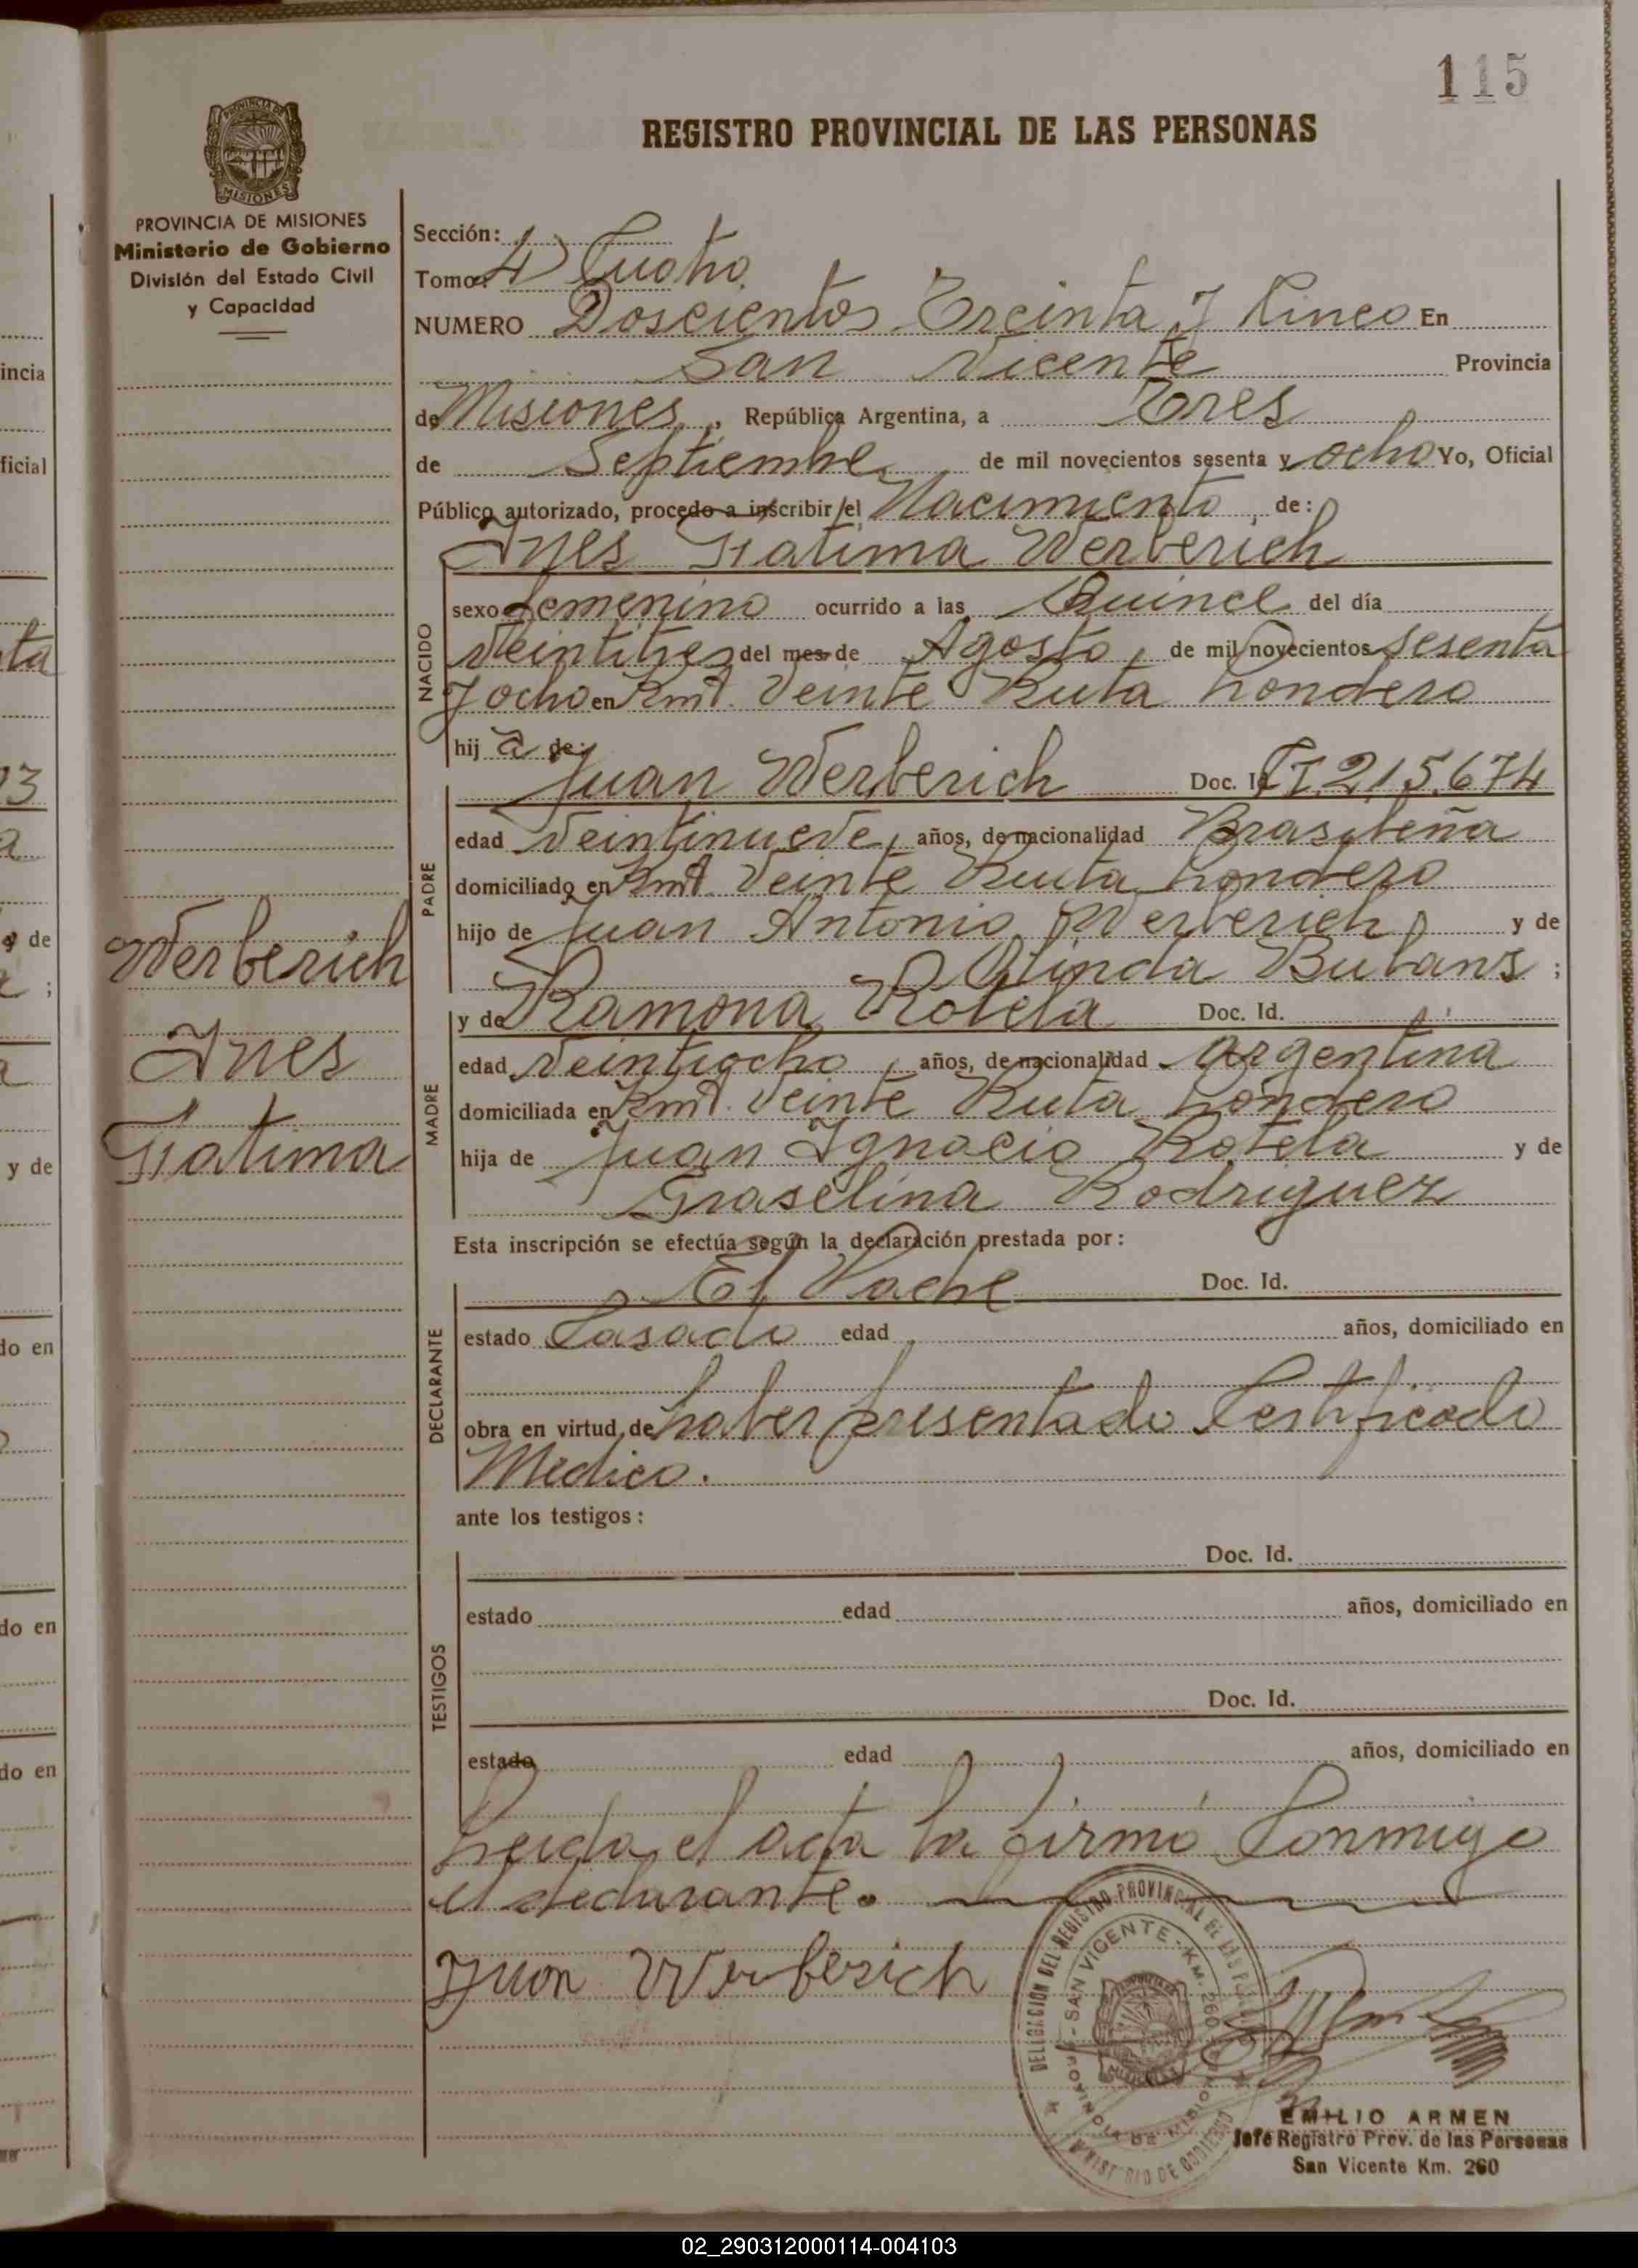 115
REGISTRO PROVINCIAL DE LAS PERSONAS
PROVINCIA DE MISIONES
Ministerio de Gobierno
División del Estado Civil
y Capacidad
Sección:
Tomo: 4) Cuatro
NUMERO Doscientos Treinta y Cinco En
San Vicente Provincia
de Misiones, República Argentina, a Tres
de Septiembre de mil novecientos sesenta y ocho Yo, Oficial
Público autorizado, procedo a inscribir el Nacimiento, de:
Ines Fatima Werberich
NACIDO
sexo femenino ocurrido a las Quince del día
Veintitres del mes de Agosto, de mil novecientos Sesenta
y ocho en Kmt. Veinte Ruta Londero
hija de:
Juan Werberich Doc. Id CI.215.674
PADRE
edad Veintinueve, años, de nacionalidad Brasileña
domiciliado en Kmt. Veinte Ruta Londero
hijo de Juan Antonio Werberich y de
Olinda ;
y de Ramona Rotela Doc. Id.
MADRE
edad Veintiocho, años, de nacionalidad Argentina
domiciliada en Kmt. Veinte Ruta Londero
hija de Juan Ignacio Rotela y de
Graselina Rodriguez
Esta inscripción se efectúa según la declaración prestada por:
El Padre Doc. Id.
DECLARANTE
estado Casado edad años, domiciliado en
obra en virtud de haber presentado Certificado
Medico.
ante los testigos:
Doc. Id.
TESTIGOS
estado edad años, domiciliado en
Doc. Id.
estado edad años, domiciliado en
Leida el acta la firmó Conmigo
el declarante.
Juan Werberich
Werberich
Ines
Fatima
DELEGACION DEL REGISTRO PROVINCIAL DE LAS PERSONAS
SAN VICENTE - KM. 260
PROVINCIA DE MISIONES
MINISTERIO DE GOBIERNO
EMILIO ARMEN
Jefe Registro Prov. de las Personas
San Vicente Km. 260
incia
ficial
ta
13
a
y de
a ;
a
y de
do en
do en
do en
02_290312000114-004103